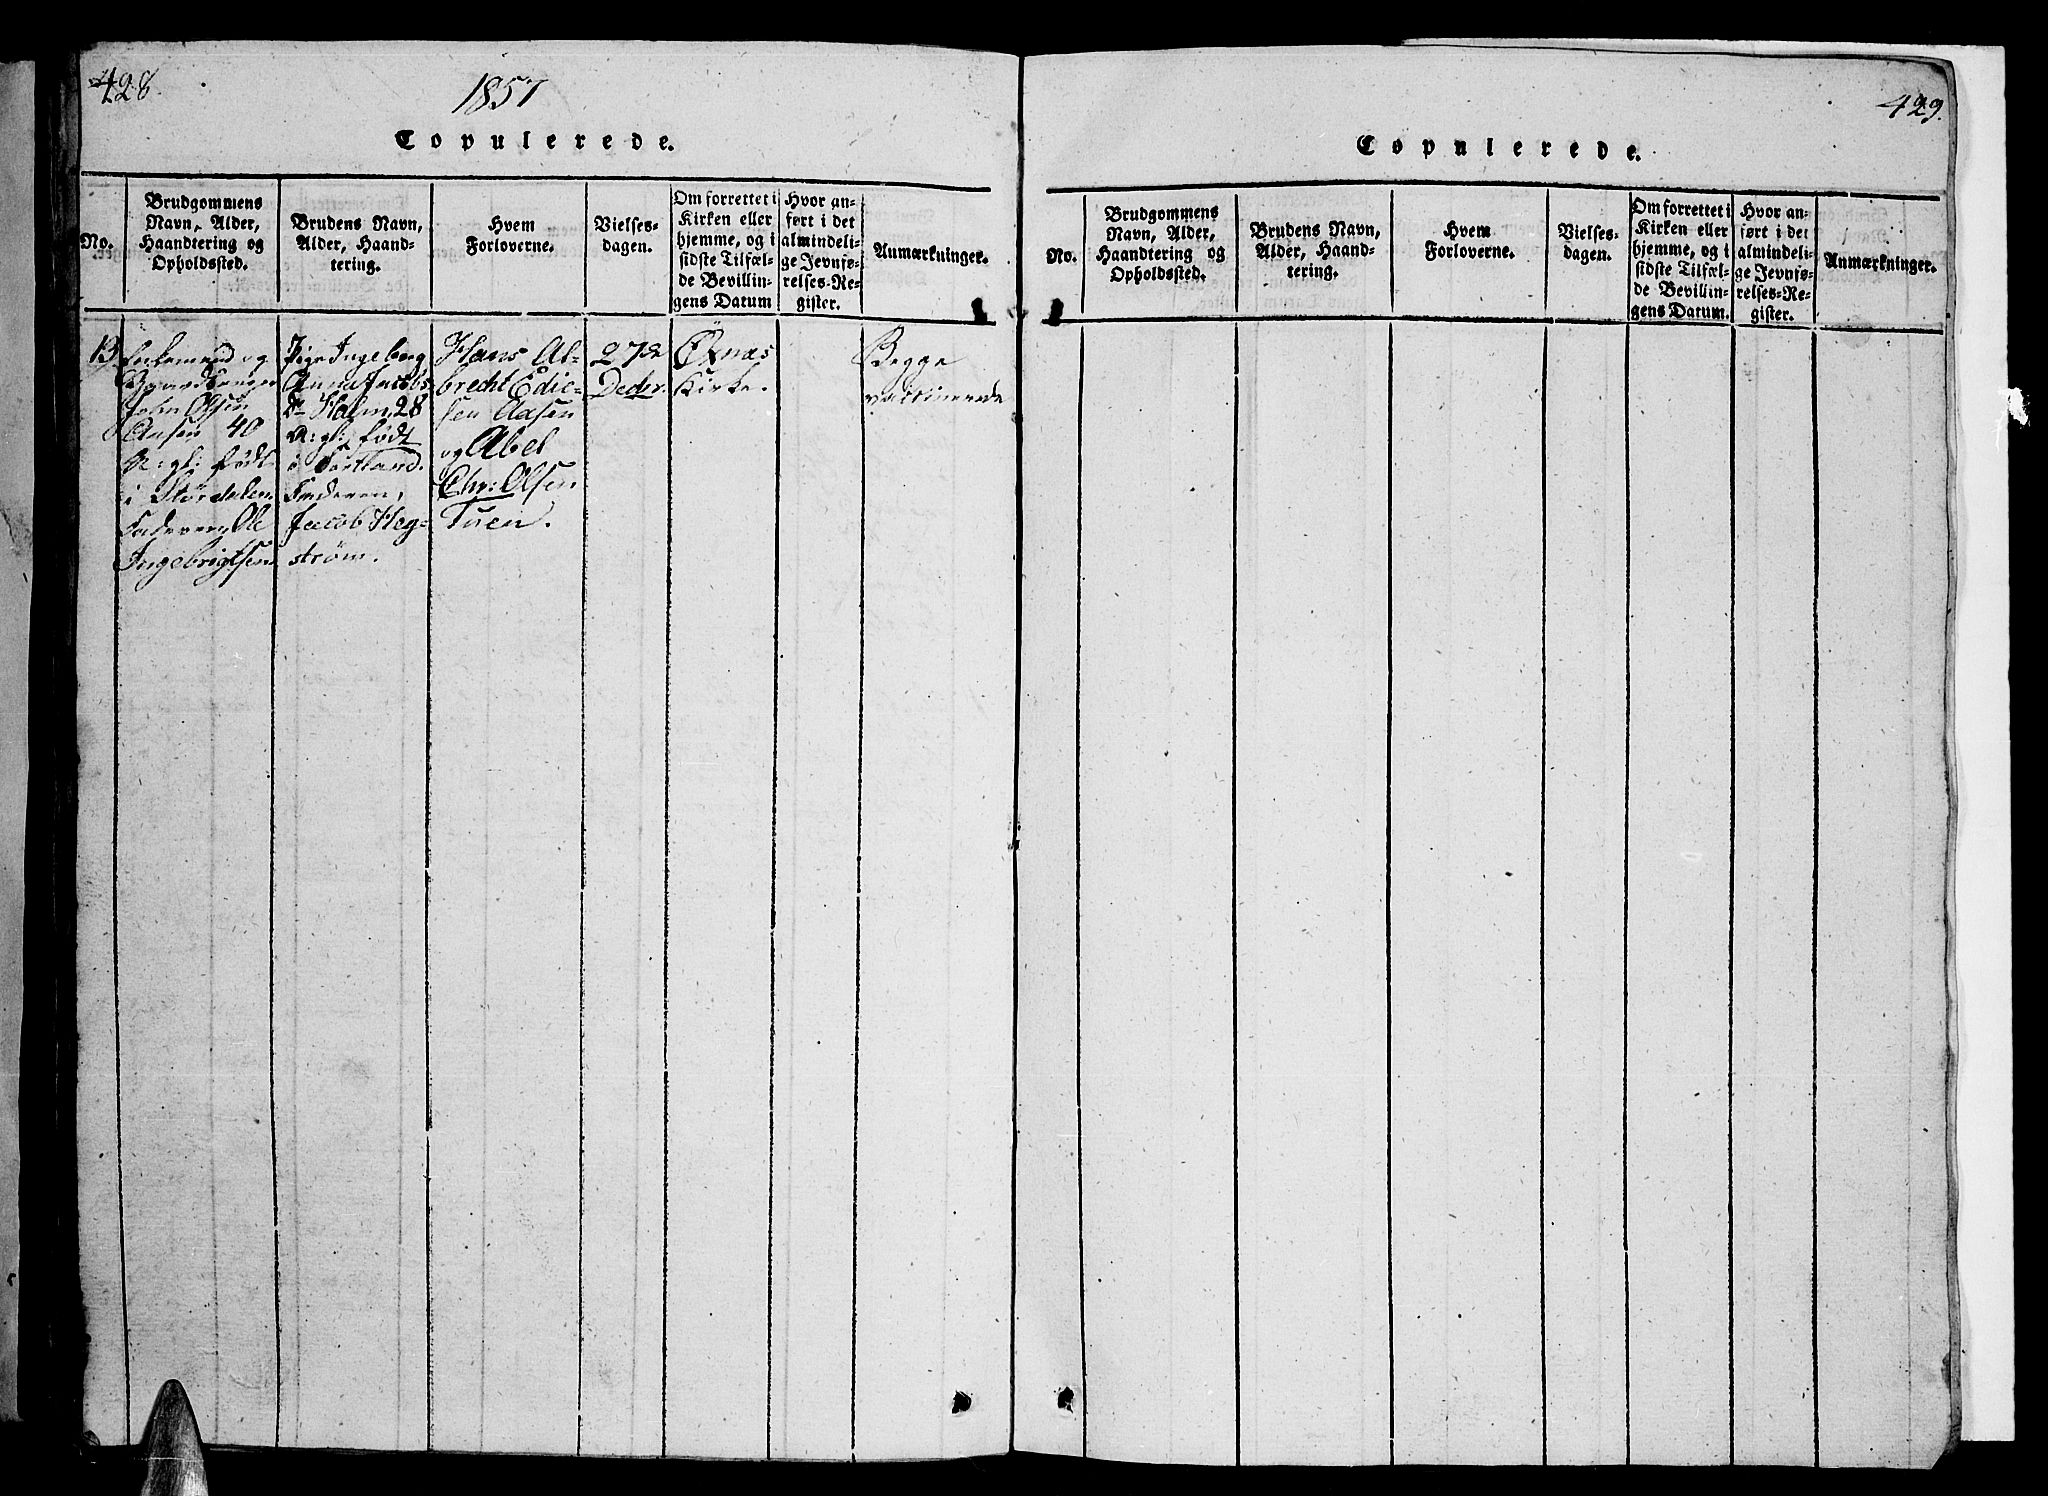 428.
1857
Copulerede.
No.
Brudgommens
Navn, Alder,
Haandtering og
Opholdssted.
Brudens Navn,
Alder, Haand-
tering.
Hvem
Forloverne.
Vielses-
dagen.
Om forrettet i
Kirken eller
hjemme, og i
sidste Tilfæl-
de Bevillin-
gens Datum
Hvor an-
ført i det
almindeli-
ge Jevnfø-
relses-Re-
gister.
Anmærkninger.
13.
og
John Olsen
Aasen 40
A: gl: født
i Størdalen
Faderen, Ole
Ingebrigtsen
Pige Ingeborg
Anna Jacobs
Dr Holm, 28
A: gl: født
i Sortland.
Faderen,
Jacob Heg-
strøm.
Hans Al-
brecht Edic-
sen Aasen
og Abel
Chr: Olsen
Tuen.
27de
Decbr.
Øxnæs
Kirke.
Begge
vaccinerede
429.
Copulerede.
No.
Brudgommens
Navn, Alder,
Haandtering og
Opholdssted.
Brudens Navn,
Alder, Haand-
tering.
Hvem
Forloverne.
Vielses-
dagen.
Om forrettet i
Kirken eller
hjemme, og i
sidste Tilfæl-
de Bevillin-
gens Datum.
Hvor an-
ført i det
almindeli-
ge Jevnfø-
relses-Re-
gister.
Anmærkninger.